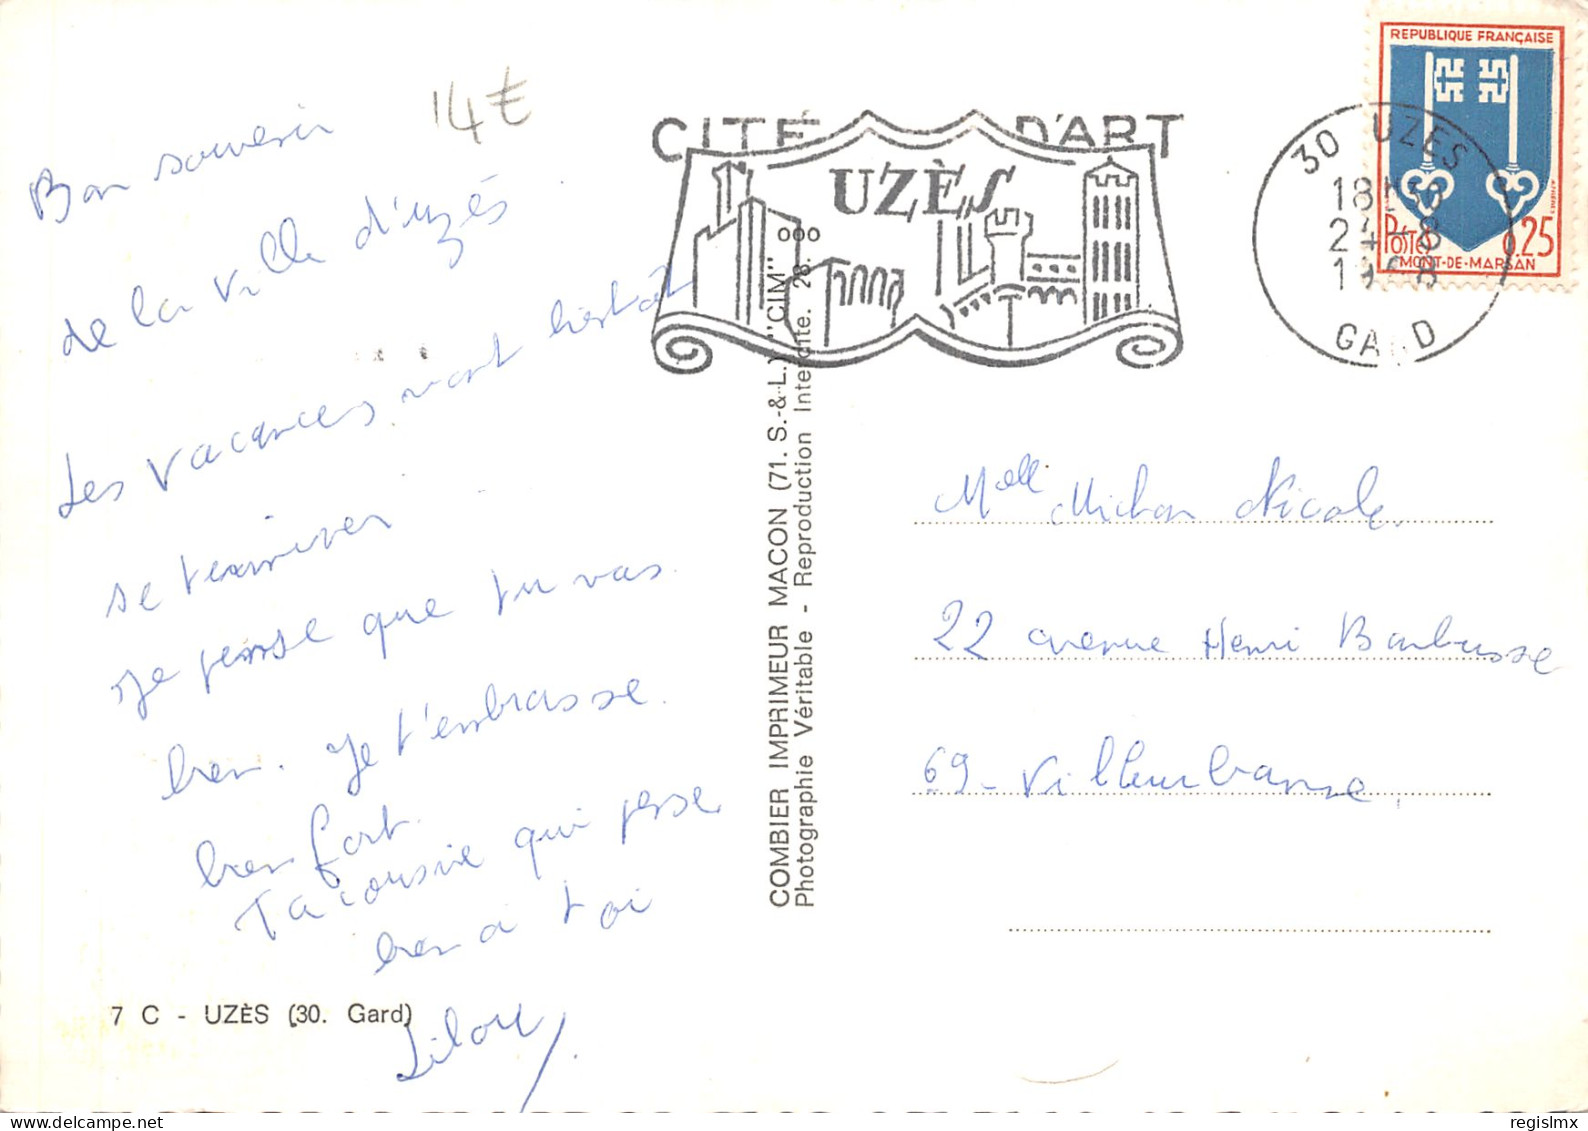 14€
Bon souvenir
de la ville d'uzés
Les vacances vont bientot
se terminer
je pense que tu vas
bien. Je t'embrasse
bien fort.
Ta cousine qui pense
bien a toi
Lilou
7 C - UZÈS (30. Gard)
COMBIER IMPRIMEUR MACON (71. S.-&-L.) "CIM"
Photographie Véritable - Reproduction Interdite. 28.
CITÉ D'ART
UZÈS
30 UZES
18H30
24-8
1968
GARD
REPUBLIQUE FRANÇAISE
POSTES 0.25
MONT-DE-MARSAN
Melle Michon Nicole.
22 avenue Henri Barbusse
69-Villeurbanne.
regislmx
delcampe.net